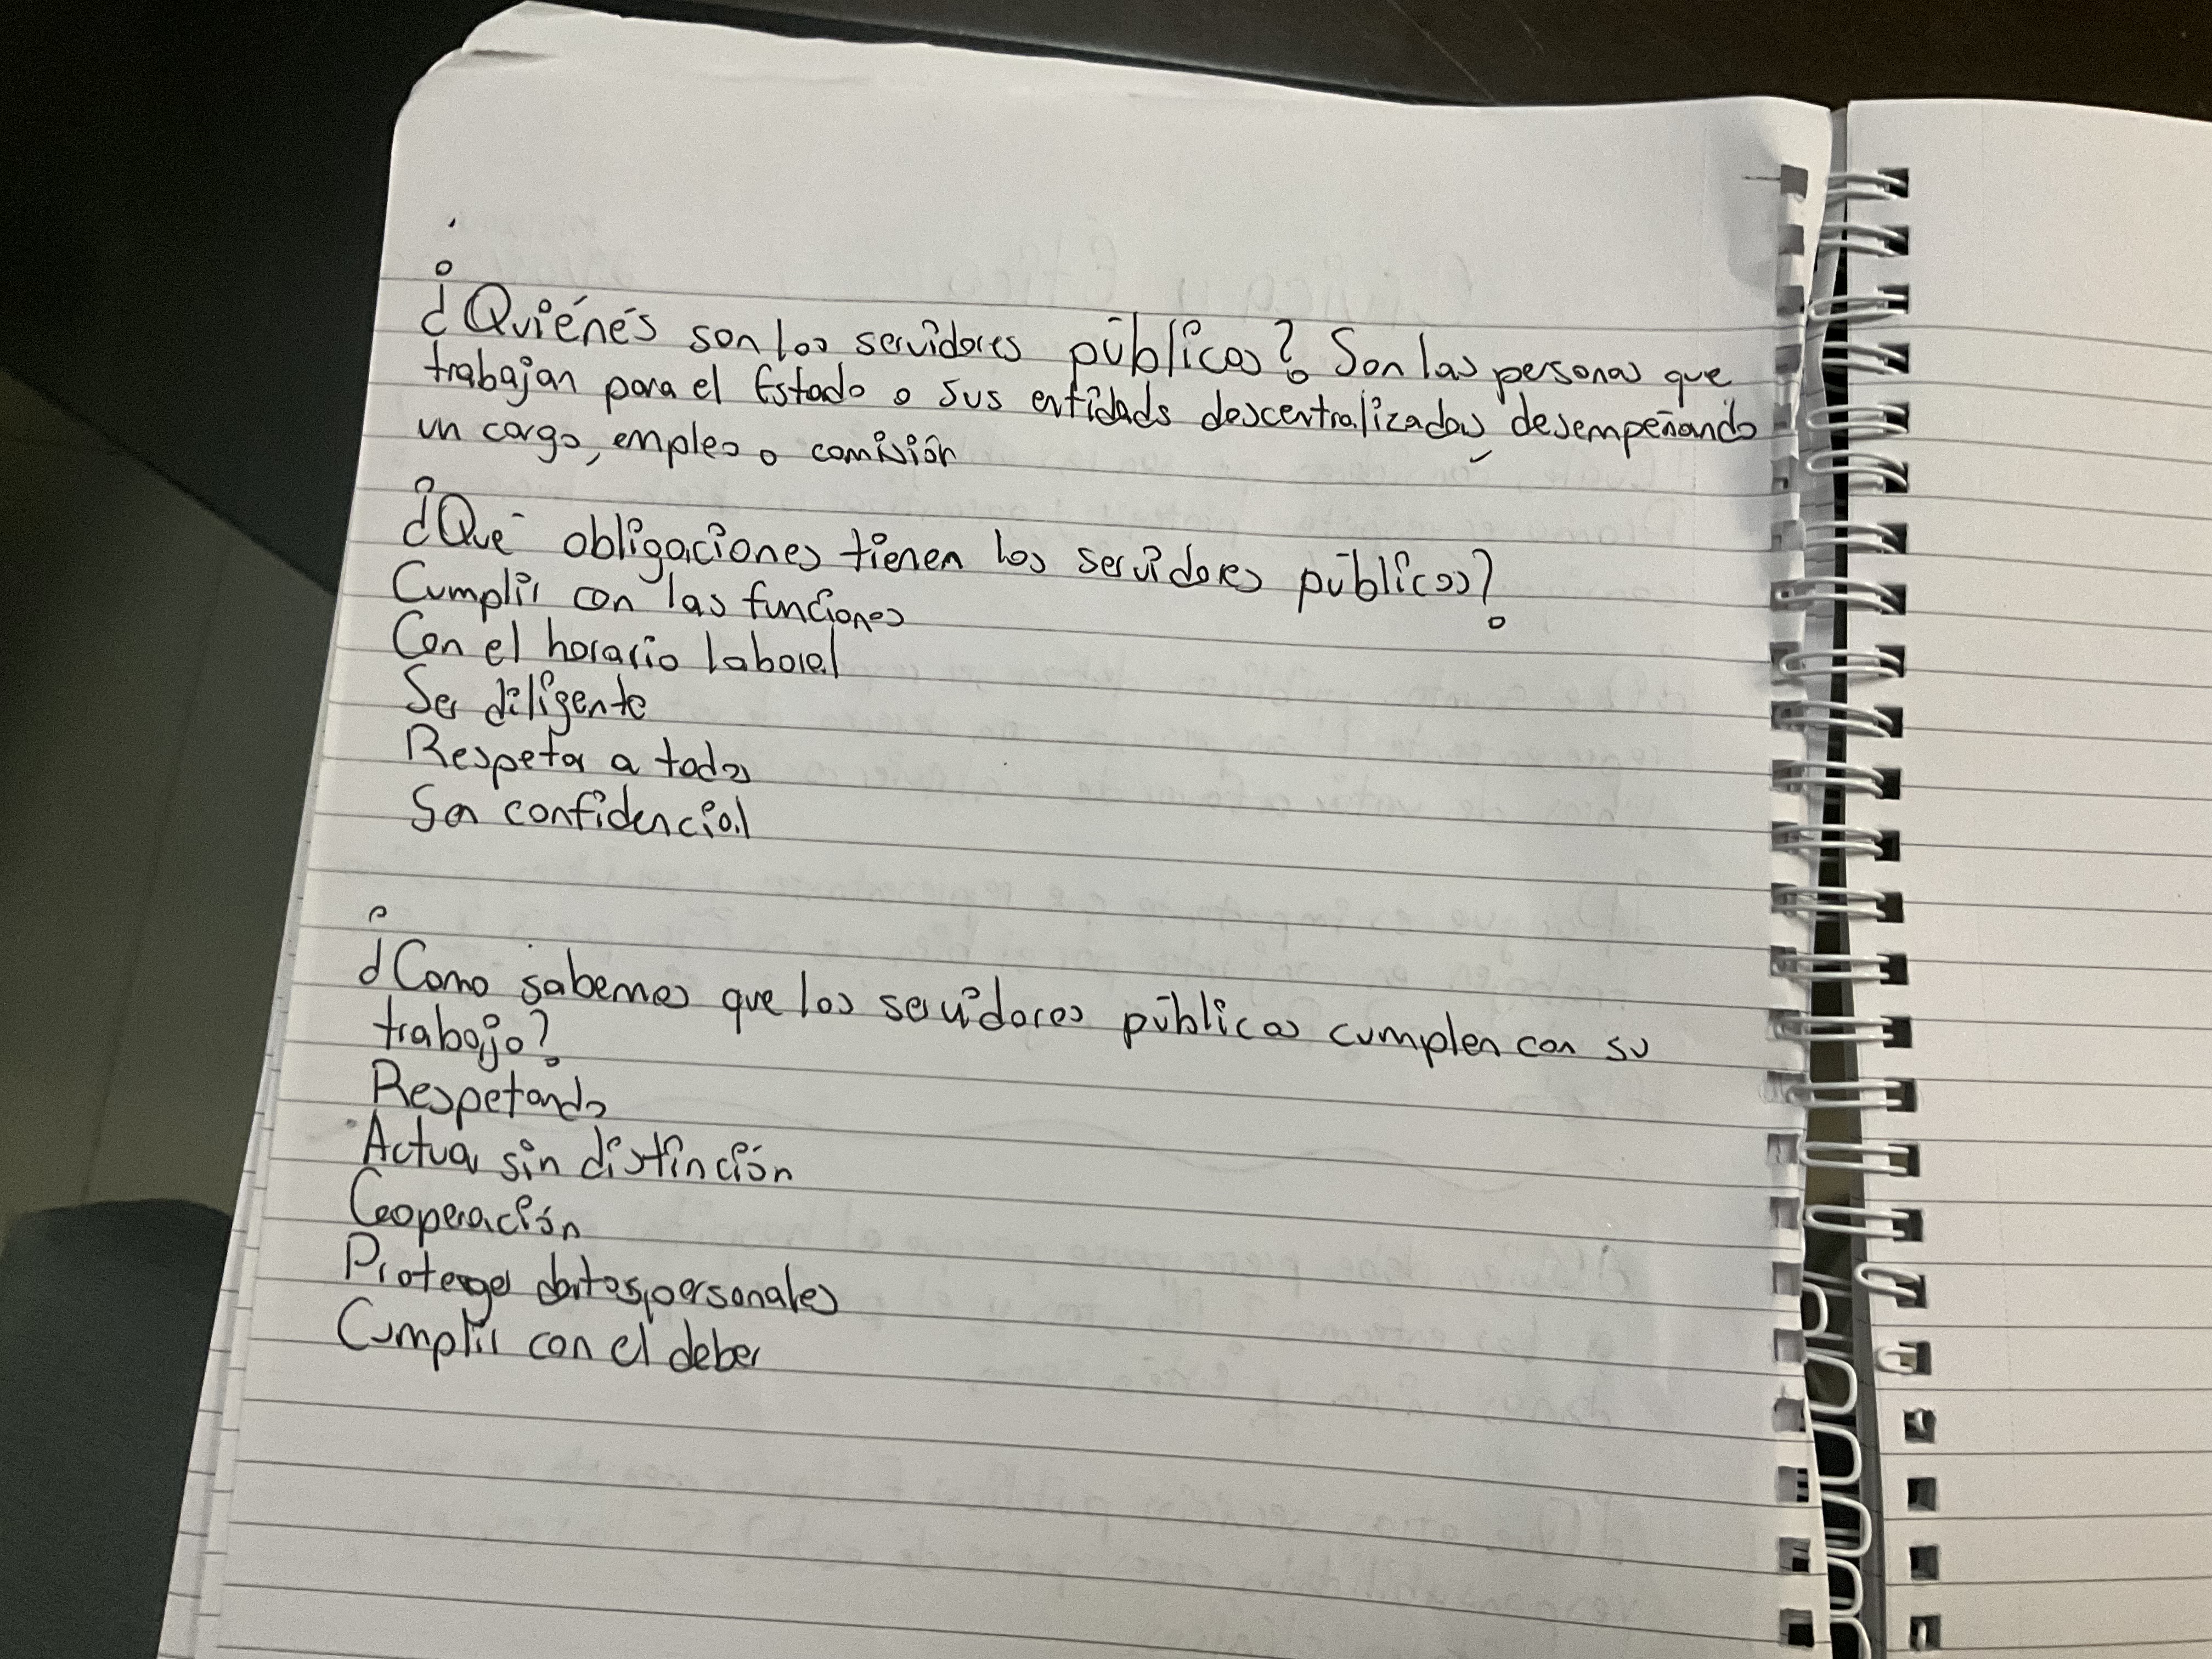 ¿Quiénes son los servidores públicos? Son las personas que
trabajan para el Estado o sus entidads descentralizadas, desempeñando
un cargo, empleo o comisión
¿Qué obligaciones tienen los servidores públicos?
Cumplir con las funciones
Con el horario laboral
Ser diligente
Respetar a todos
Ser confidencial
¿Como sabemos que los servidores públicos cumplen con su
trabajo?
Respetando
Actuar sin distinción
Cooperación
Proteger datos personales
Cumplir con el deber